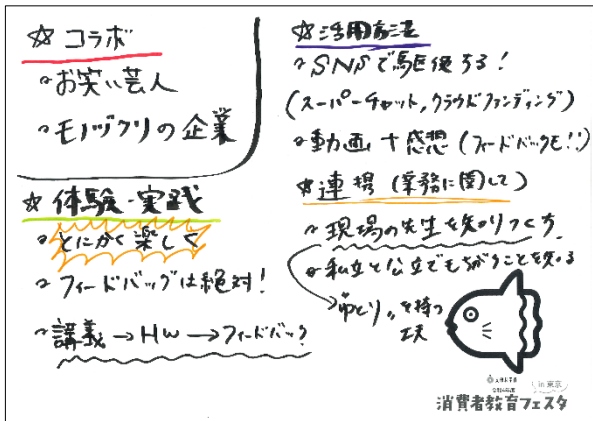 ☆ コラボ
・お笑い芸人
・モノヅクリの企業
☆ 体験・実践
・とにかく楽しく
・フィードバッグは絶対!
・講義→HW→フィードバック
☆活用方法
・SNSで駆使する!
(スーパーチャット,クラウドファンディング)
・動画+感想(フィードバックも!!)
☆連携(業務に関して)
・現場の先生を知りつくす
・私立と公立でもちがうことを知る
→"ゆとり"を持つ
工夫
in 東京
消費者教育フェスタ